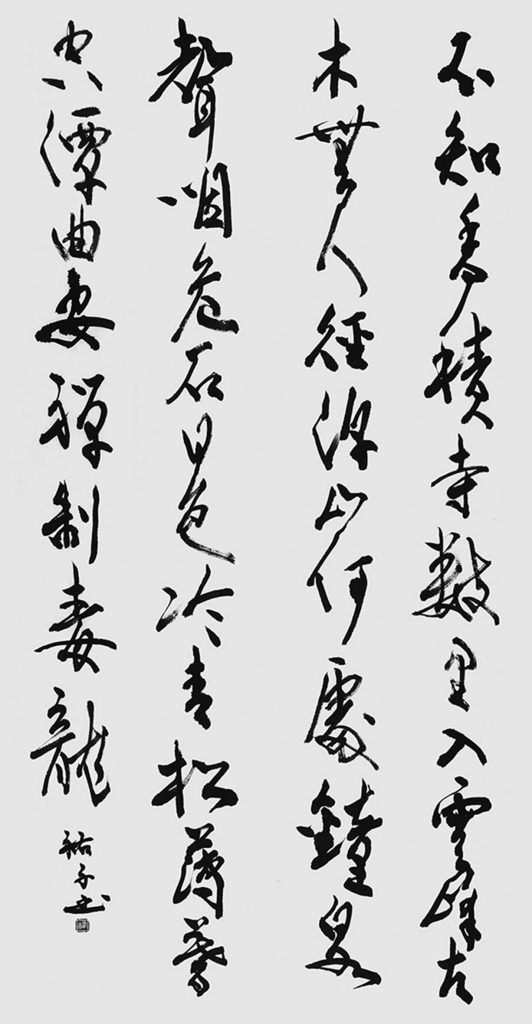 不知香積寺數里入雲峰古
木無人徑深山何處鐘泉
聲咽危石日色冷青松薄暮
空潭曲安禪制毒龍
子书